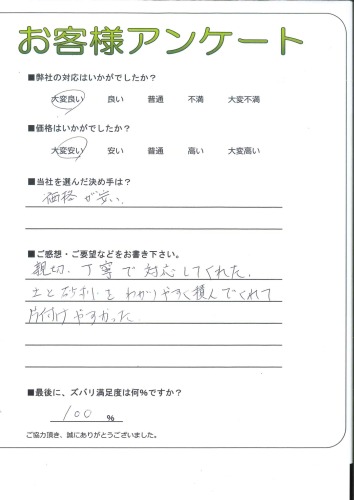 お客様アンケート
■弊社の対応はいかがでしたか？
大変良い 良い 普通 不満 大変不満
■価格はいかがでしたか？
大変安い 安い 普通 高い 大変高い
■当社を選んだ決め手は？
価格が安い、
■ご感想・ご要望などをお書き下さい。
親切、丁寧で対応してくれた。
土と砂利をわかりやすく積んでくれて
片付けやすかった
■最後に、ズバリ満足度は何%ですか？
100 %
ご協力頂き、誠にありがとうございました。